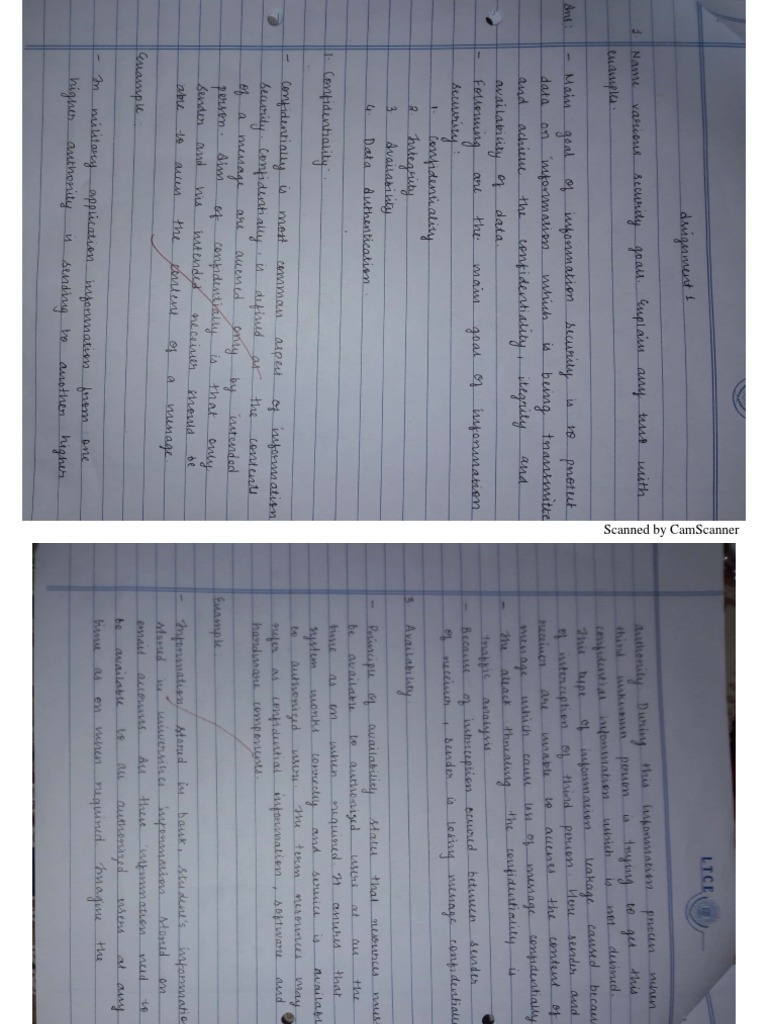 Assignment 1
1 Name various security goals. Explain any two with
examples.
Ans: - Main goal of information security is to protect
data on information which is being transmitte
and achieve the confidentiality, itegrity and
availability of data.
- Following are the main goal of information
security:
1. Confidentiality
2. Integrity
3 Availability
4. Data Authentication.
1. Confidentiality:
- Confidentially is most common aspect of information
security. Confidentially, is defined as the contents
of a message are accessed only by intended
person. Aim of confidentially is that only
sender and his intended receiver should be
able to access the content of a message
Example.
- In military application information from one
higher authority is sending to another higher
Scanned by CamScanner
LTCE
authority During this information process when
third unknown person is trying to get this
confidential information which is not desired.
This type of information leakage caused becaus
of interception of third person Here sender and
receiver are unable to accents the content of
message which cause use of message confidentially
- The attack threating the confidentiality is
traffic analysis
- Because of interception occured between sender
of receiver, sender is losing message confidentiall
3. Availability
- Principle of availability states that resources mus
be available to authorized users at all the
time as on when required It assures that
system works correctly and service is availabl
to authorized user. The term resources may
refer as confidential information, software and
hardware components.
Example
- Information stored in bank, student's informatio
stored in universities information stored on
email accounts All these information need to
be available to all authorized users at any
time as on when required Imagine the